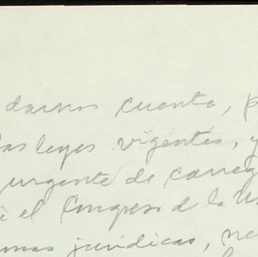 darnos cuenta, p
las leyes vigentes, y
urgente de correg
el Congreso de la
mas jurídicas, ne